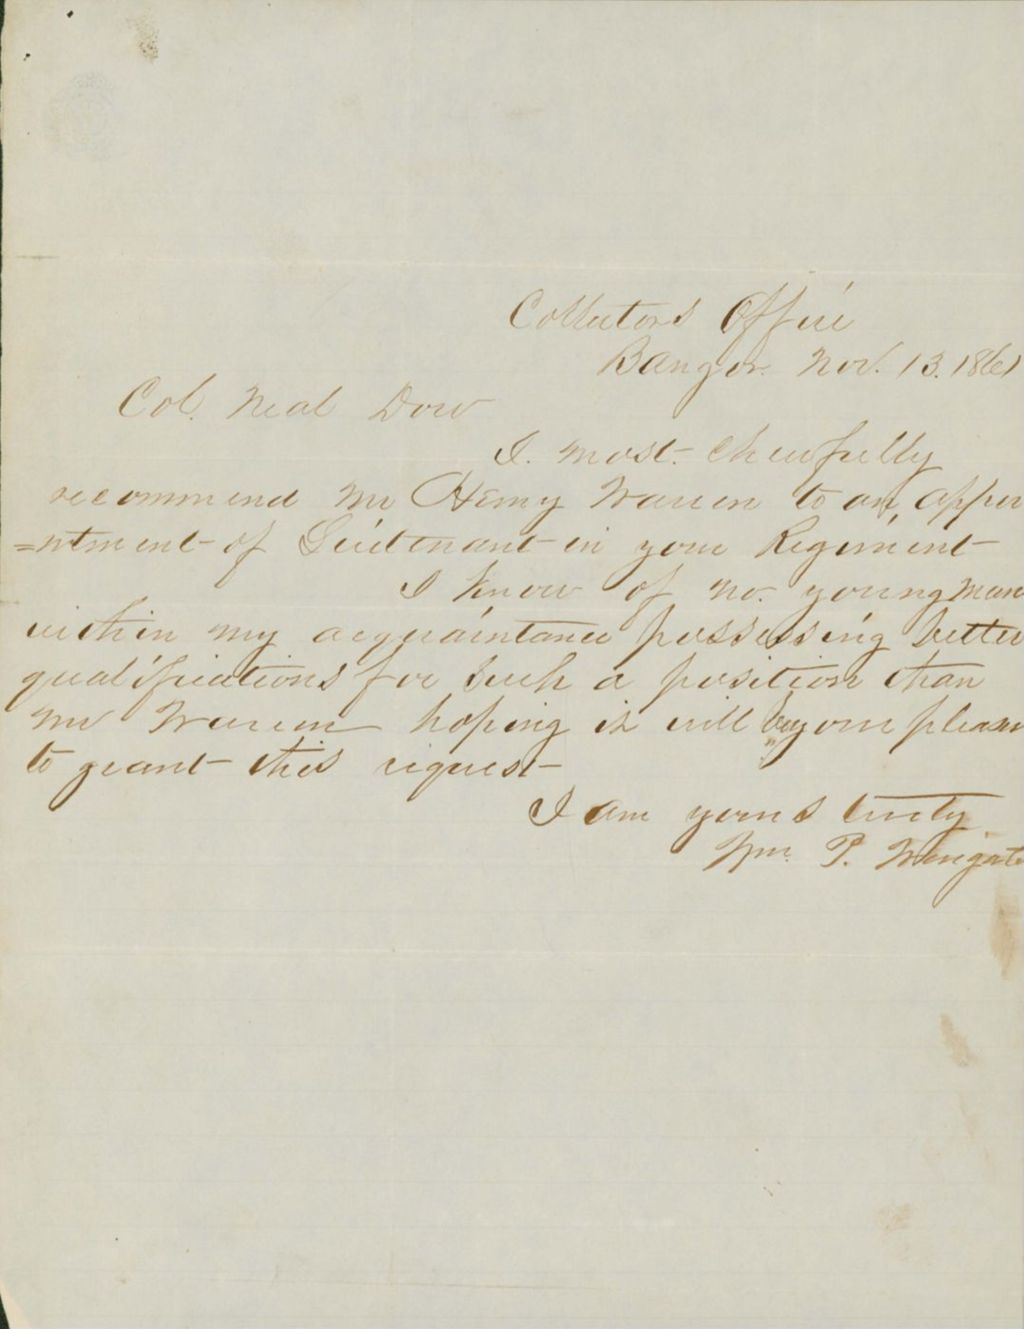 Collectors Office
Bangor. Nov. 13. 1861
Col. Neal Dow
I. most cheerfully
recommend Mr Henry Warren to an appoi
=ntment of Lieutenant in your Regiment
I know of no. young man
within my acquaintance possessing better
qualifications for such a position than
Mr Warren hoping it will be your pleasure
to grant this request
I am yours truly
Wm. P. Wingate